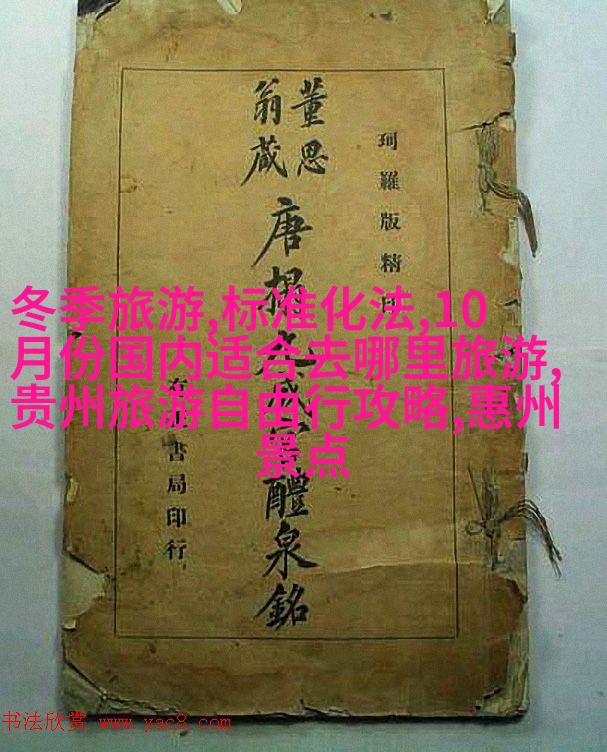 珂羅版精
董思
翁藏
唐 醴泉銘
書局印行
冬季旅游,标准化法,10
月份国内适合去哪里旅游,
贵州旅游自由行攻略,惠州
景点
书法欣赏 www.yac8.com